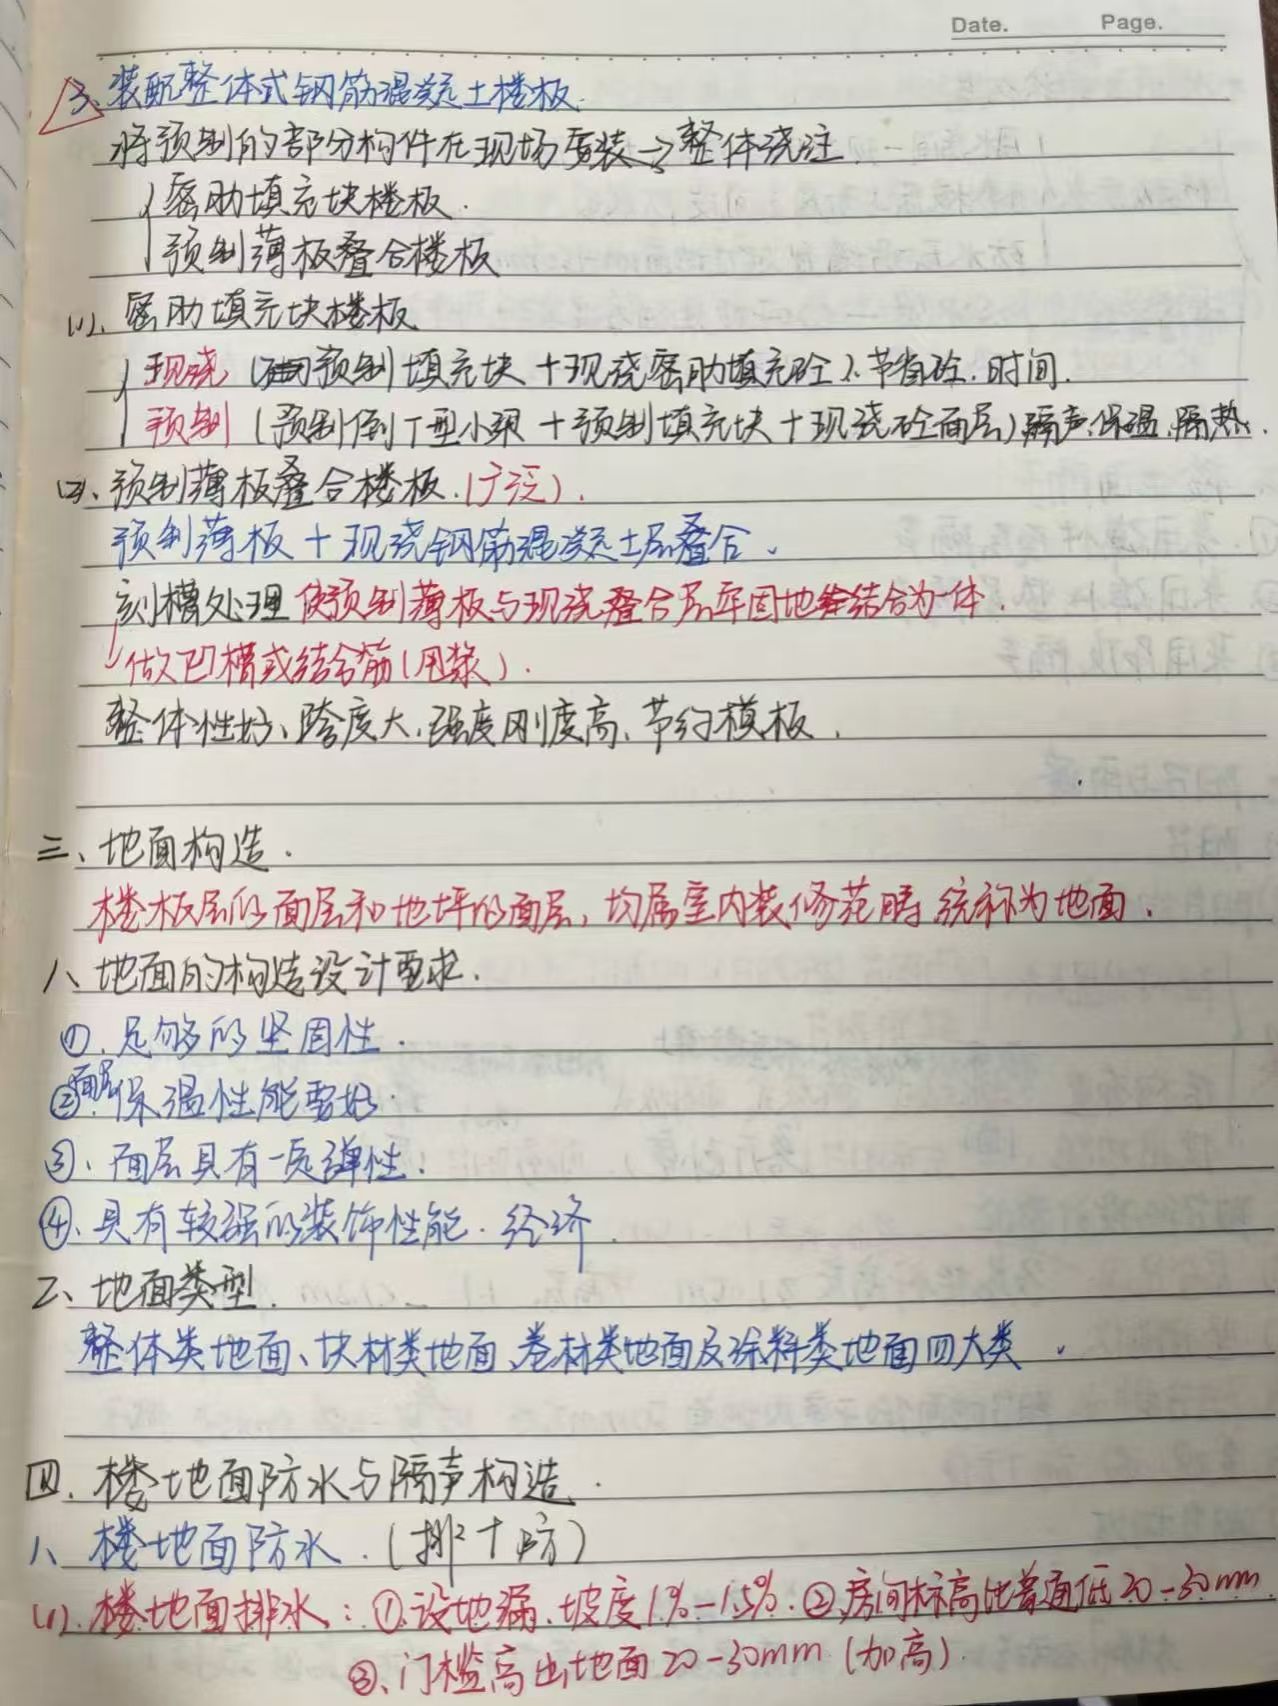 Date. Page.
3、装配整体式钢筋混凝土楼板.
将预制的部分构件在现场安装→整体浇注
密肋填充块楼板.
预制薄板叠合楼板
(1)、密肋填充块楼板
现浇(预制填充块+现浇密肋填充砼)、节省砼、时间.
预制(预制倒T型小梁+预制填充块+现浇砼面层)隔声、保温、隔热.
(2)、预制薄板叠合楼板.(广泛).
预制薄板+现浇钢筋混凝土层叠合.
刻槽处理 使预制薄板与现浇叠合层牢固地结合为一体.
做凹槽或结合筋(甩浆).
整体性好、跨度大、强度刚度高、节约模板.
三、地面构造.
楼板层的面层和地坪的面层,均属室内装修范畴,统称为地面.
1、地面的构造设计要求.
①.足够的坚固性.
②.面层保温性能要好.
③、面层具有一定弹性.
④、具有较强的装饰性能.经济.
2、地面类型.
整体类地面、块材类地面、卷材类地面及涂料类地面四大类.
四.楼地面防水与隔声构造.
1、楼地面防水.(排+防)
(1).楼地面排水:①.设地漏.坡度1%-1.5%.②.房间标高比普通低20-30mm.
③、门槛高出地面20-30mm(加高).